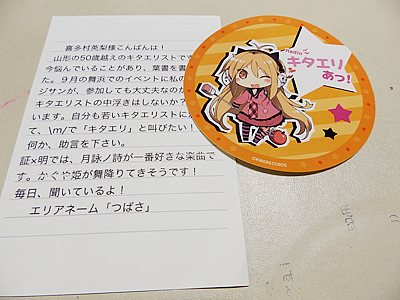 喜多村英梨様こんばんは!
山形の50歳越えのキタエリストです
今悩んでいることがあり、葉書を書
た。9月の舞浜でのイベントに私の
ジサンが、参加しても大丈夫なのか
キタエリストの中浮きはしないか?
います。自分も若いキタエリストに
て、\m/で「キタエリ」と叫びたい!
何か、助言を下さい。
証×明では、月詠ノ詩が一番好きな楽曲で
す。かぐや姫が舞降りてきそうです!
毎日、聞いているよ!
エリアネーム「つばさ」
Radio
キタエリ
あっ!
©KINGRECORDS